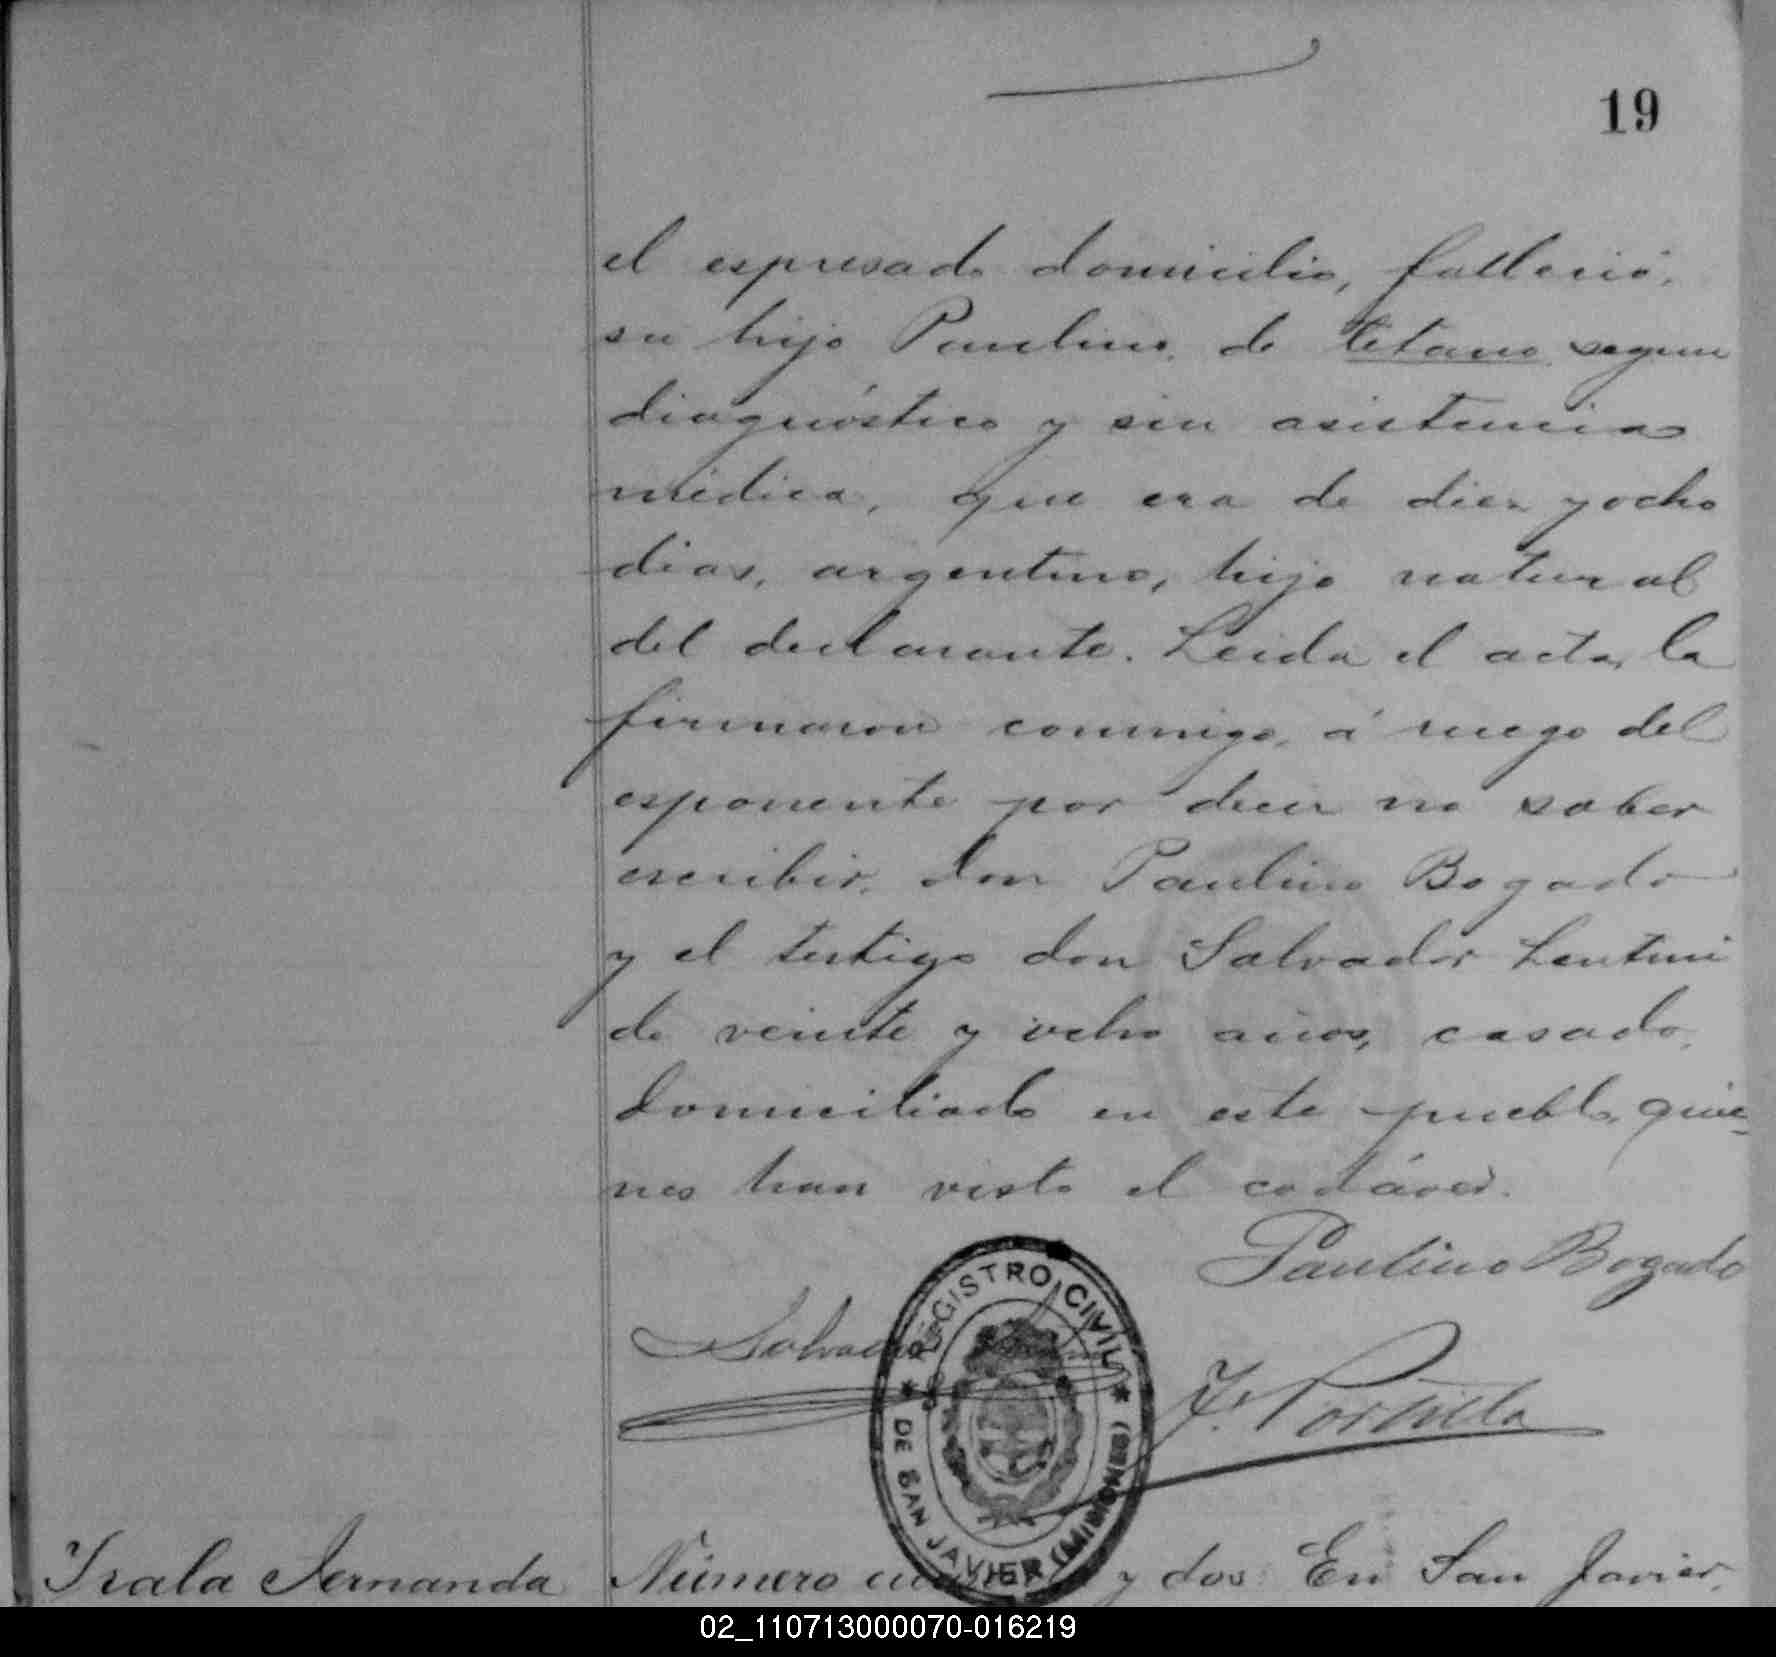 19
el espresado domicilio, falleció,
su hijo Paulino, de tetano segun
diagnóstico y sin asistencia
médica, que era de diez y ocho
dias, argentino, hijo natural
del declarante. Leida el acta, la
firmaron conmigo, á ruego del
esponente por decir no saber
escribir, don Paulino Bogado
y el testigo don Salvador Lentini
de veinte y ocho años, casado,
domiciliado en este pueblo, quie-
nes han visto el cadáver.
Paulino Bogado
Salvador
REGISTRO CIVIL
DE SAN JAVIER (MISIONES)
F. Portilla
Irala Fernanda
Número y dos. En San Javier,
02_110713000070-016219